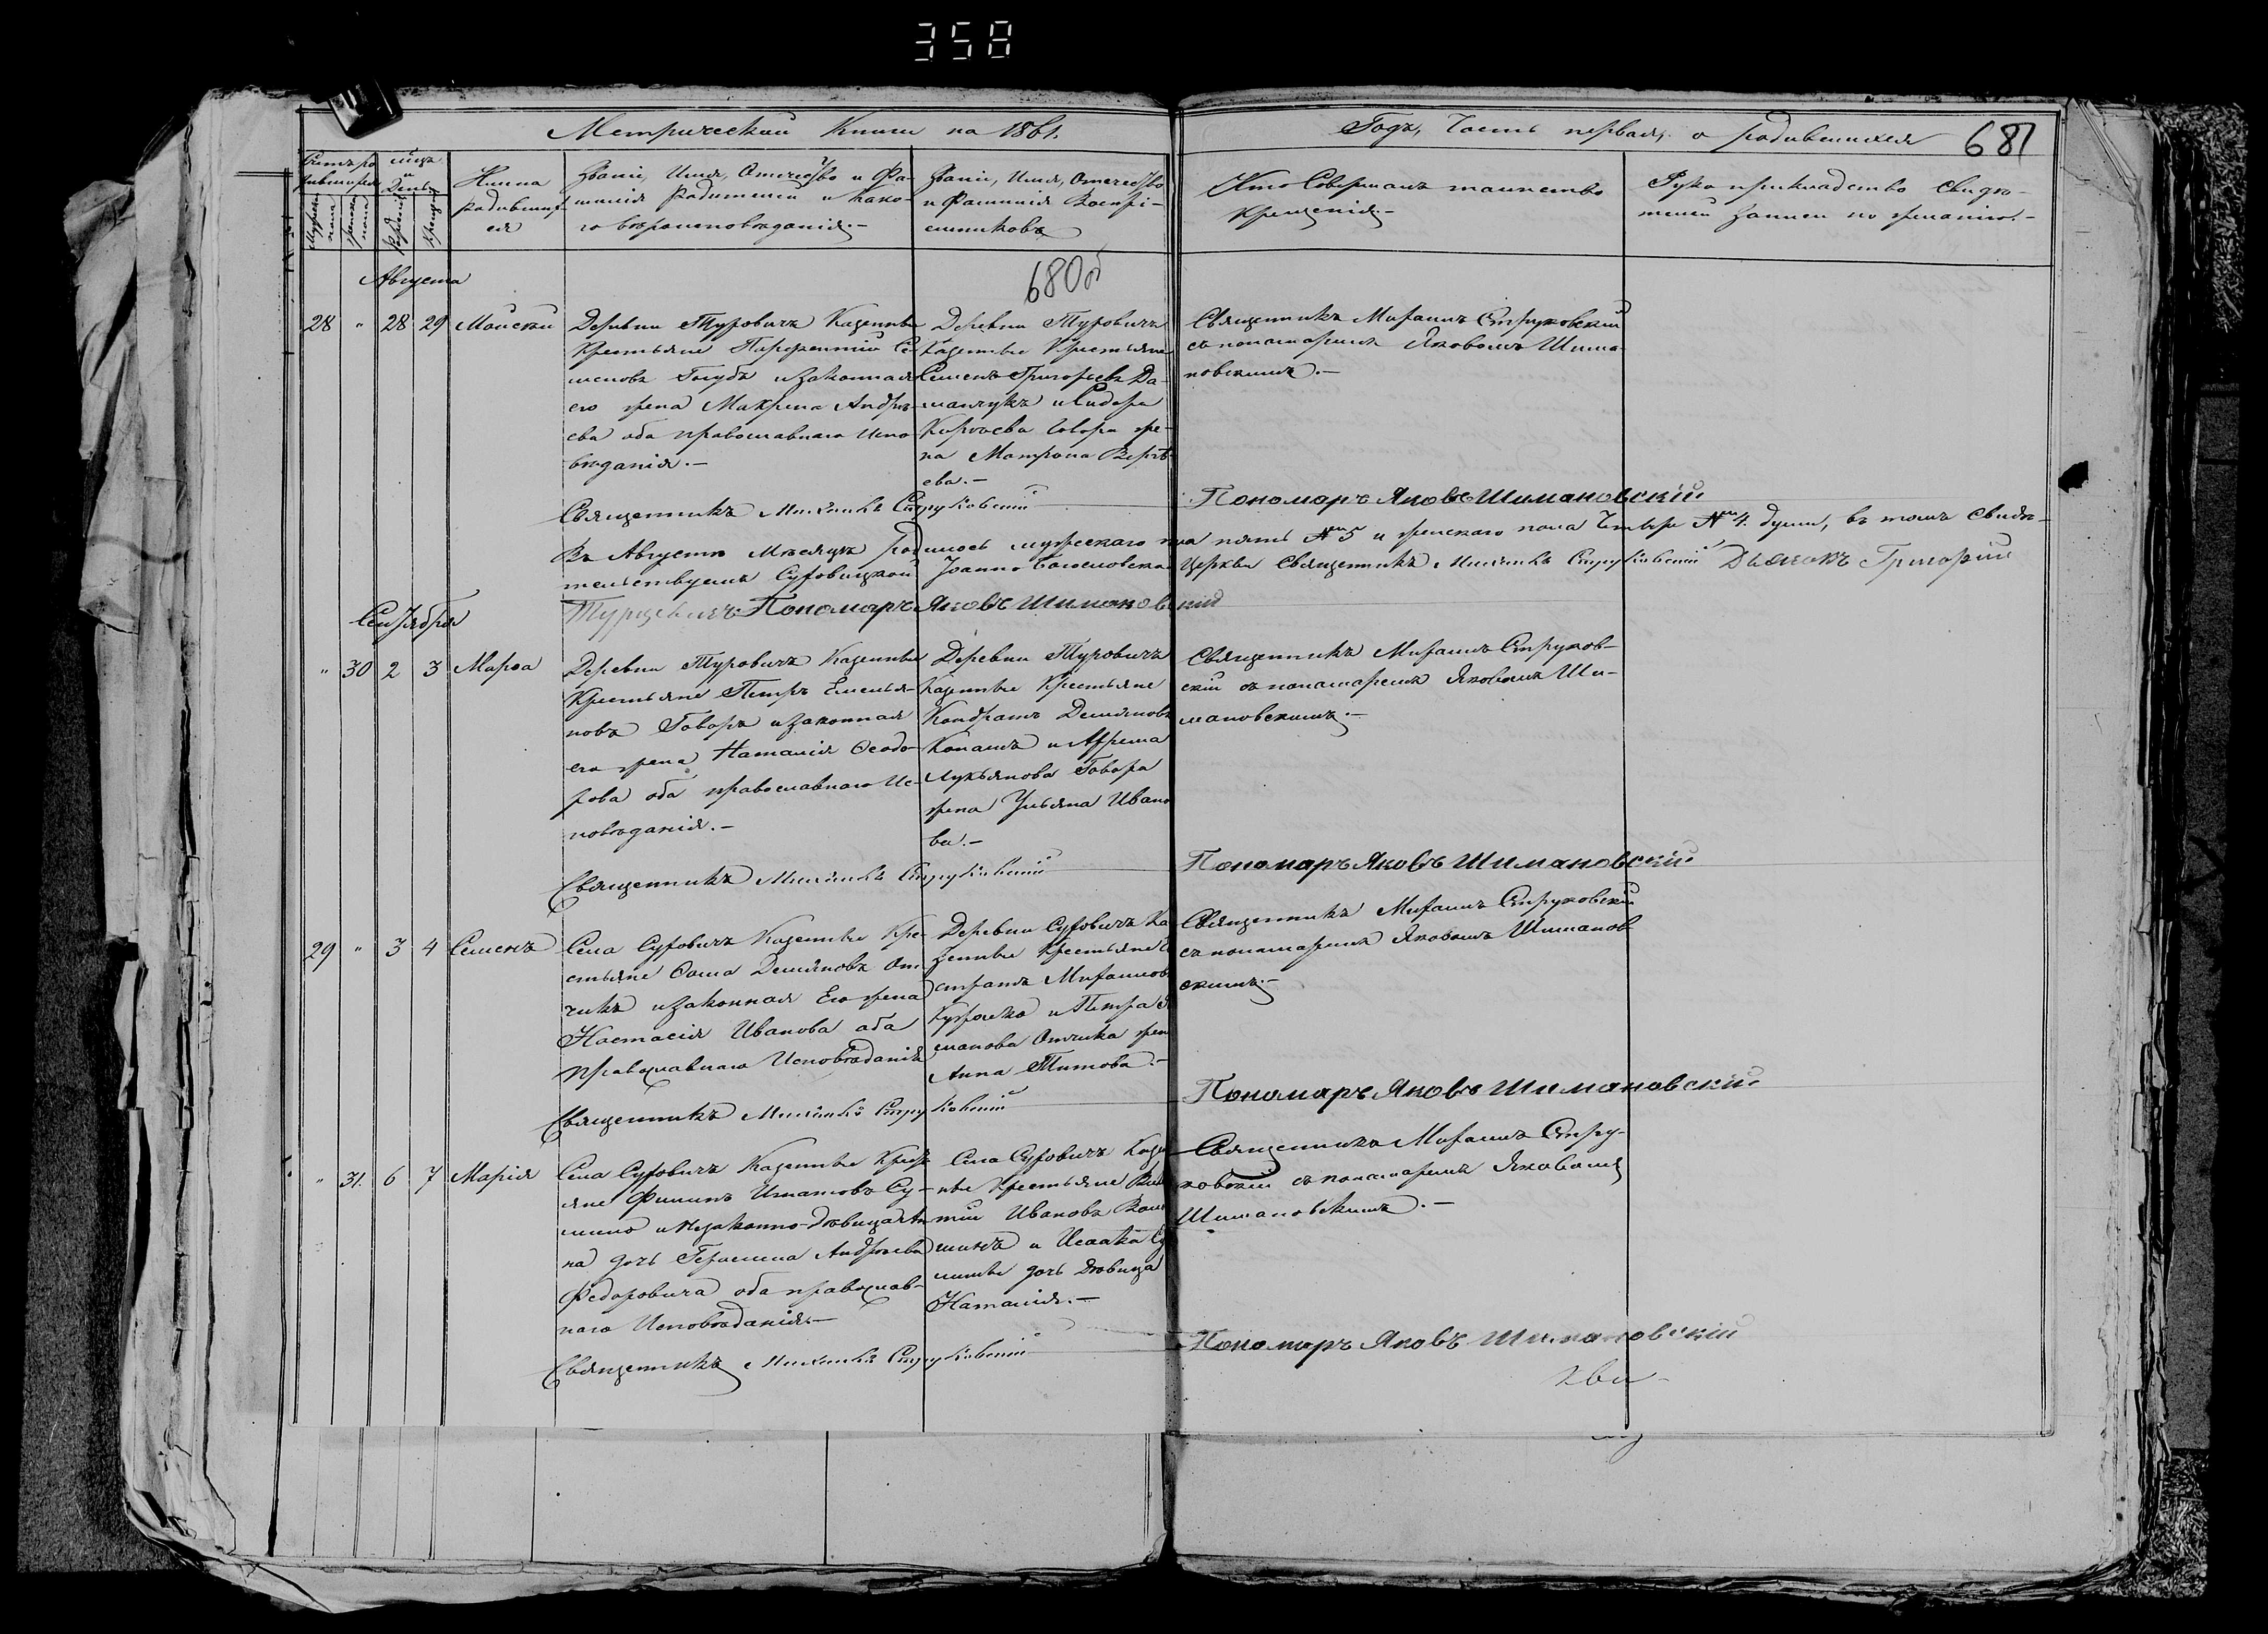 358
Метрической Книги на 1861.
Годъ, Часть первая, о родившихся
681
Счетъ родившихся
Мужеска пола
Женска пола
Мѣсяцъ и День
Рожденія
Крещенія
Имена родившихся
Званіе, Имя, Отчество и Фа-
милія Родителей и како-
го вѣроисповѣданія.-
Званіе, Имя, Отчество
и Фамилія Воспрі-
емниковъ
Кто Совершалъ таинство
Крещенія.-
Рукоприкладство свидѣ-
телей записи по желанію.-
Августа
680об
28 " 28 29 Моисей
Деревни Туровичъ Казенные
Крестьяне Парфентій Се-
меновъ Голубъ и законная
его жена Макрина Андрѣ-
ева оба православнаго Испо-
вѣданія.-
Деревни Туровичъ
Казенные Крестьяне
Семенъ Григорьевъ До-
манчукъ и Сидора
Говора же-
на Матрона
ева.-
Священникъ Михаилъ Струковскій
съ пономаремъ Яковомъ Шима-
новскимъ.-
Священникъ Михаилъ Струковскій
Пономаръ Яковъ Шимановскій
Въ Августѣ Мѣсяцѣ родилось мужескаго пола пять №5 и женскаго пола Четыре №4. души, въ томъ Свидѣ-
тельствуемъ Суховицкой Іоанно Богословской Церкви Священникъ Михаилъ Струковскій Дьячокъ Григорій
Пономаръ Яковъ Шимановскій
Сентября
" 30 2 3 Марѳа
Деревни Туровичъ Казенные
Крестьяне Петръ Емелья-
новъ Говоръ и законная
его жена Наталія Ѳеодо-
рова оба православнаго Ис-
повѣданія.-
Деревни Туровичъ
Казенные Крестьяне
Кондратъ Демяновъ
и
Лукьянова Говора
жена Ульяна Ивано
ва.-
Священникъ Михаилъ Струков-
скій съ пономаремъ Яковомъ Ши-
мановскимъ.-
Священникъ Михаилъ Струковскій
Пономаръ Яковъ Шимановскій
29 " 3 4 Семенъ
Села Суховичъ Казенные Кре-
стьяне Ѳома Демяновъ От-
чикъ и законная Его жена
Настасія Иванова оба
православнаго Исповѣданія
Деревни Суховичъ Ка
зенные Крестьяне
Михаиловъ
и Петра
Отчика жена
Анна Титова.-
Священникъ Михаилъ Струковскій
съ пономаремъ Яковомъ Шиманов
скимъ.-
Священникъ Михаилъ Струковскій
Пономаръ Яковъ Шимановскій
" 31. 6 7 Марія
Села Суховичъ Казенные Крестъ
яне Филипъ Игнатовъ Су-
и незаконно-дѣвица Ан
на дочь Герасима Андрѣева
Федоровича оба православ-
наго Исповѣданія.-
Села Суховичъ Казе
нные Крестьяне
Ивановъ
и Исаака
дочь дѣвица
Наталія.-
Священникъ Михаилъ Стру-
ковскій съ пономаремъ Яковомъ
Шимановскимъ.-
Священникъ Михаилъ Струковскій
Пономаръ Яковъ Шимановскій